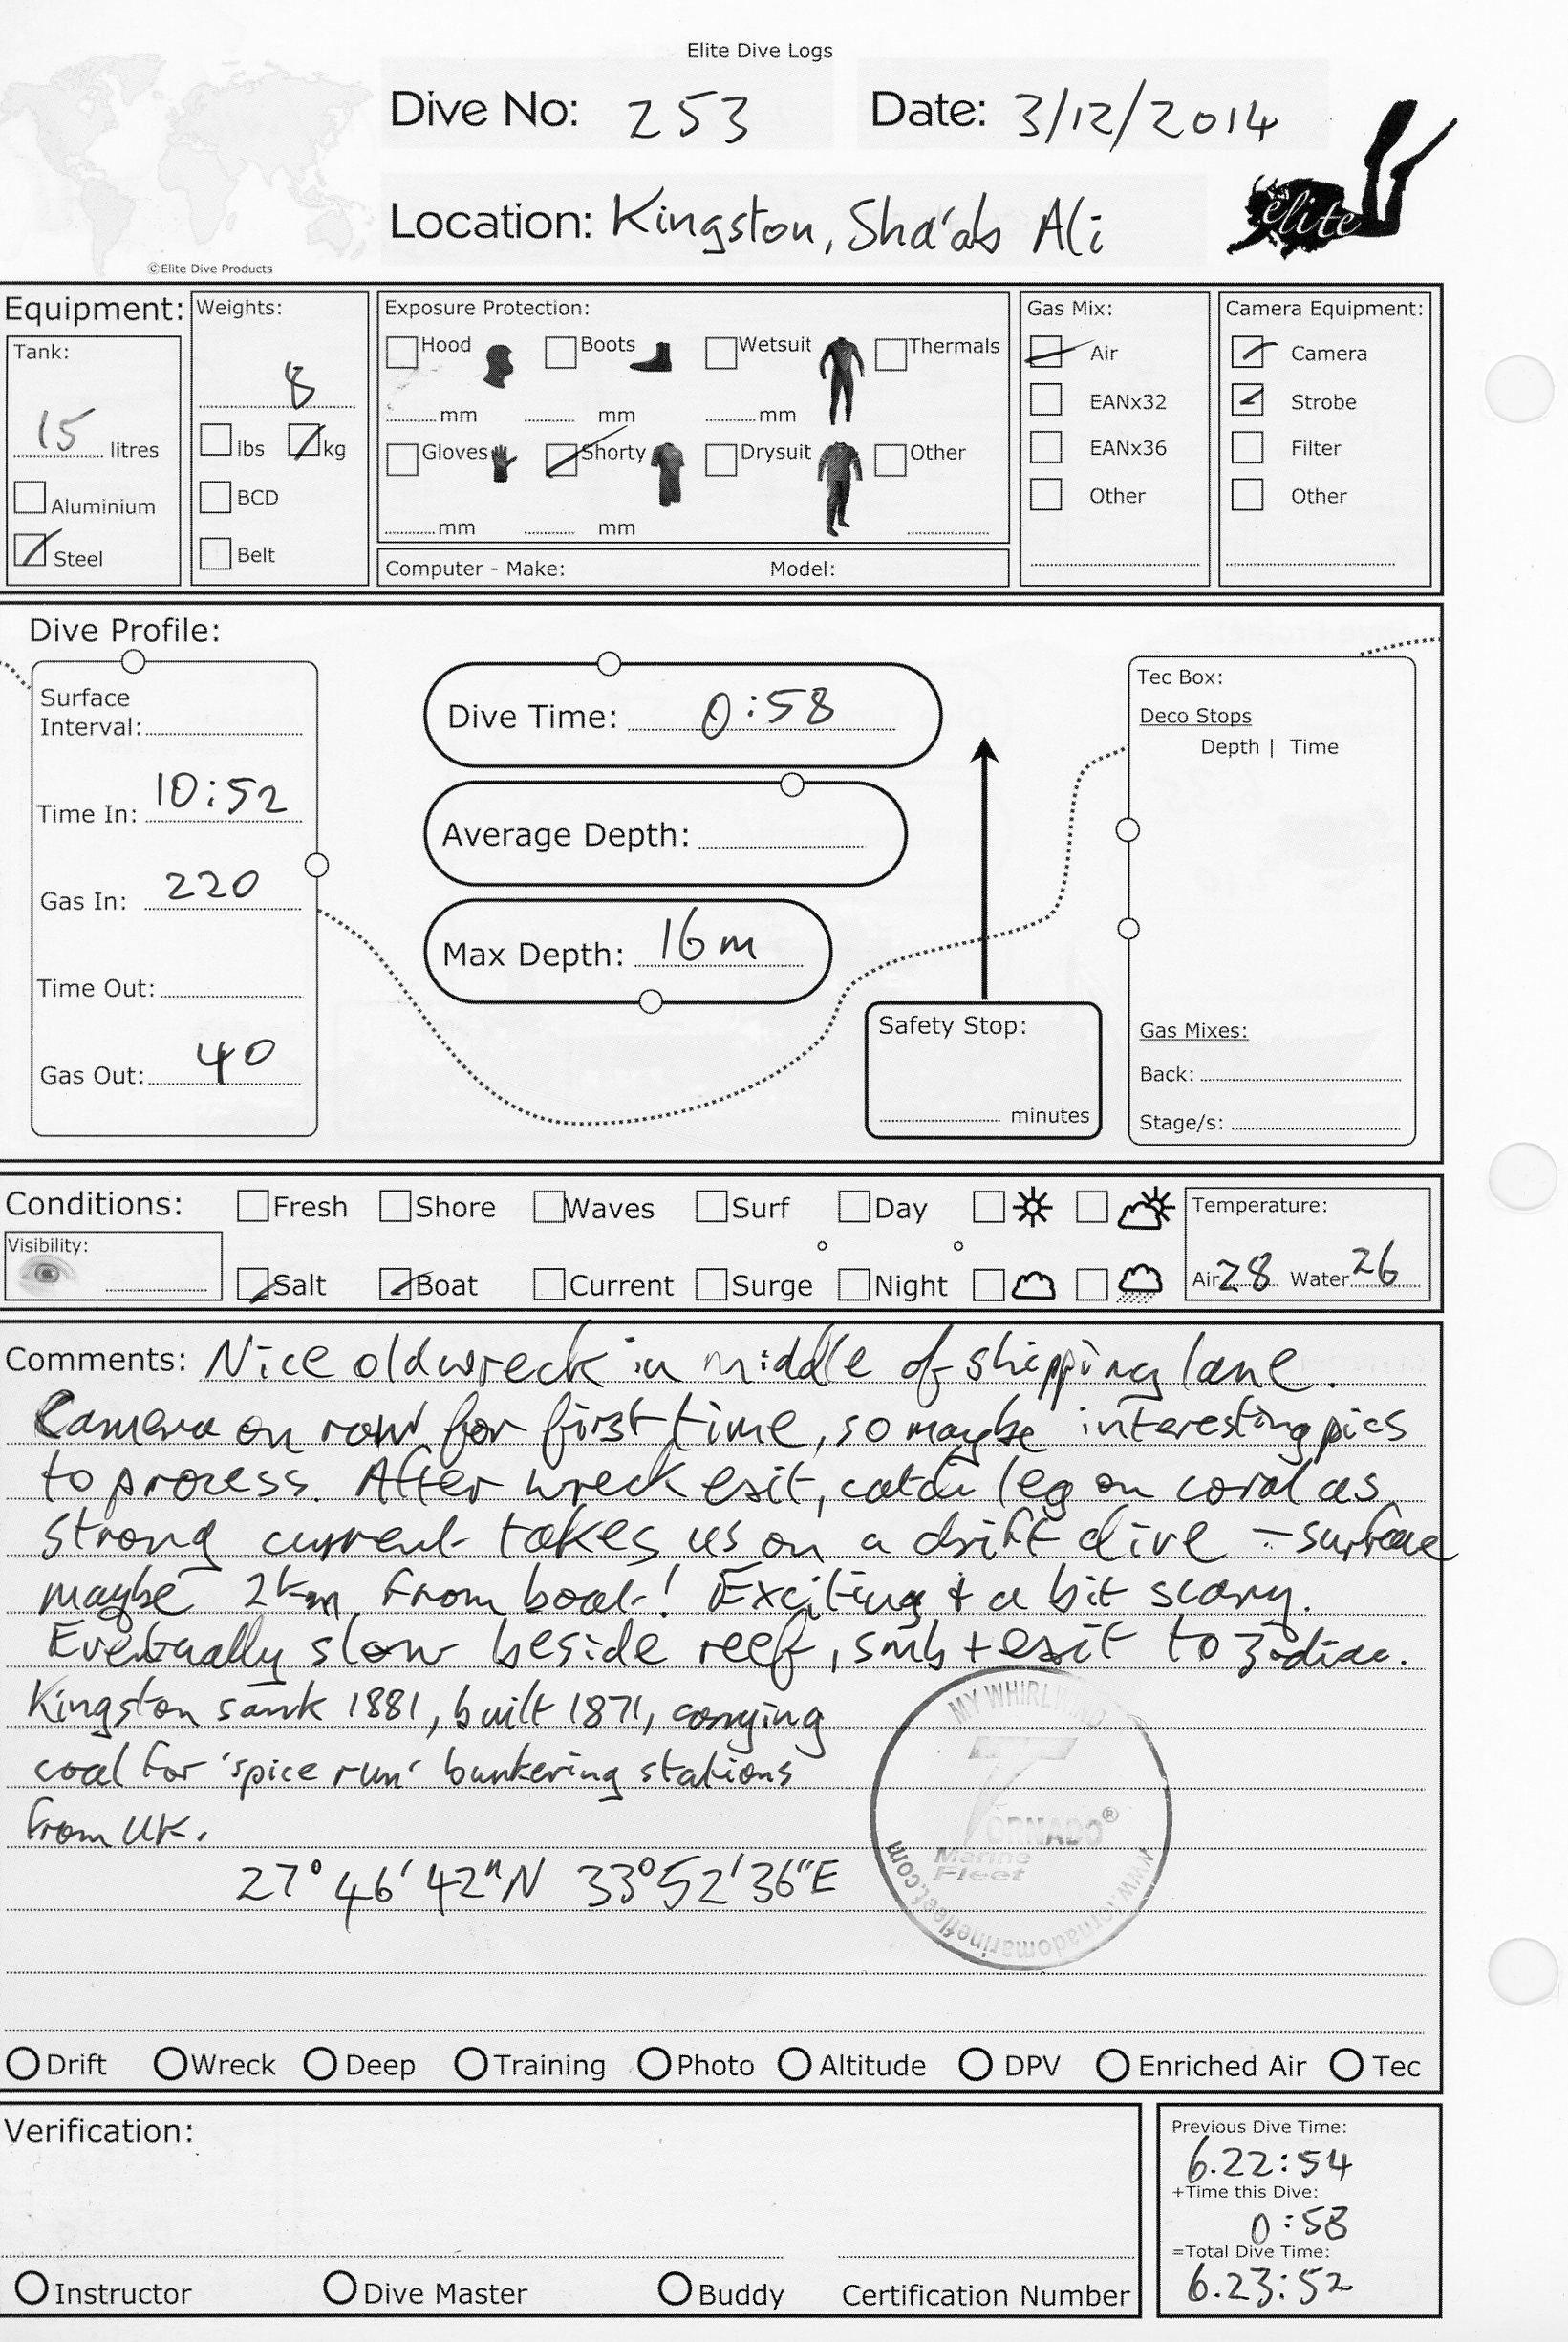 Elite Dive Logs
Dive No: 253 Date: 3/12/2014
Location: Kingston, Sha'ab Ali
elite
©Elite Dive Products
Equipment: Weights: Exposure Protection: Gas Mix: Camera Equipment:
Tank: Hood Boots Wetsuit Thermals Air Camera
8 mm mm mm EANx32 Strobe
15 litres lbs kg Gloves Shorty Drysuit Other EANx36 Filter
Aluminium BCD mm mm Other Other
Steel Belt Computer - Make: Model:
Dive Profile:
Surface
Interval:
Time In: 10:52
Gas In: 220
Time Out:
Gas Out: 40
Dive Time: 0:58
Average Depth:
Max Depth: 16m
Safety Stop:
minutes
Tec Box:
Deco Stops
Depth | Time
Gas Mixes:
Back:
Stage/s:
Conditions: Fresh Shore Waves Surf Day Temperature:
Visibility: Salt Boat Current Surge Night Air 28 Water 26
Comments: Nice old wreck in middle of shipping lane.
Camera on raw for first time, so maybe interesting pics
to process. After wreck exit, catch leg on coral as
strong current takes us on a drift dive - surface
maybe 2km from boat! Exciting + a bit scary.
Eventually slow beside reef, smb + exit to zodiac.
Kingston sank 1881, built 1871, carrying
coal for 'spice run' bunkering stations
from UK.
27° 46' 42"N 33° 52' 36"E
MY WHIRLWIND
TORNADO®
Marine
Fleet
www.tornadomarinefleet.com
Drift Wreck Deep Training Photo Altitude DPV Enriched Air Tec
Verification:
Instructor Dive Master Buddy Certification Number
Previous Dive Time:
6.22:54
+Time this Dive:
0:58
=Total Dive Time:
6.23:52